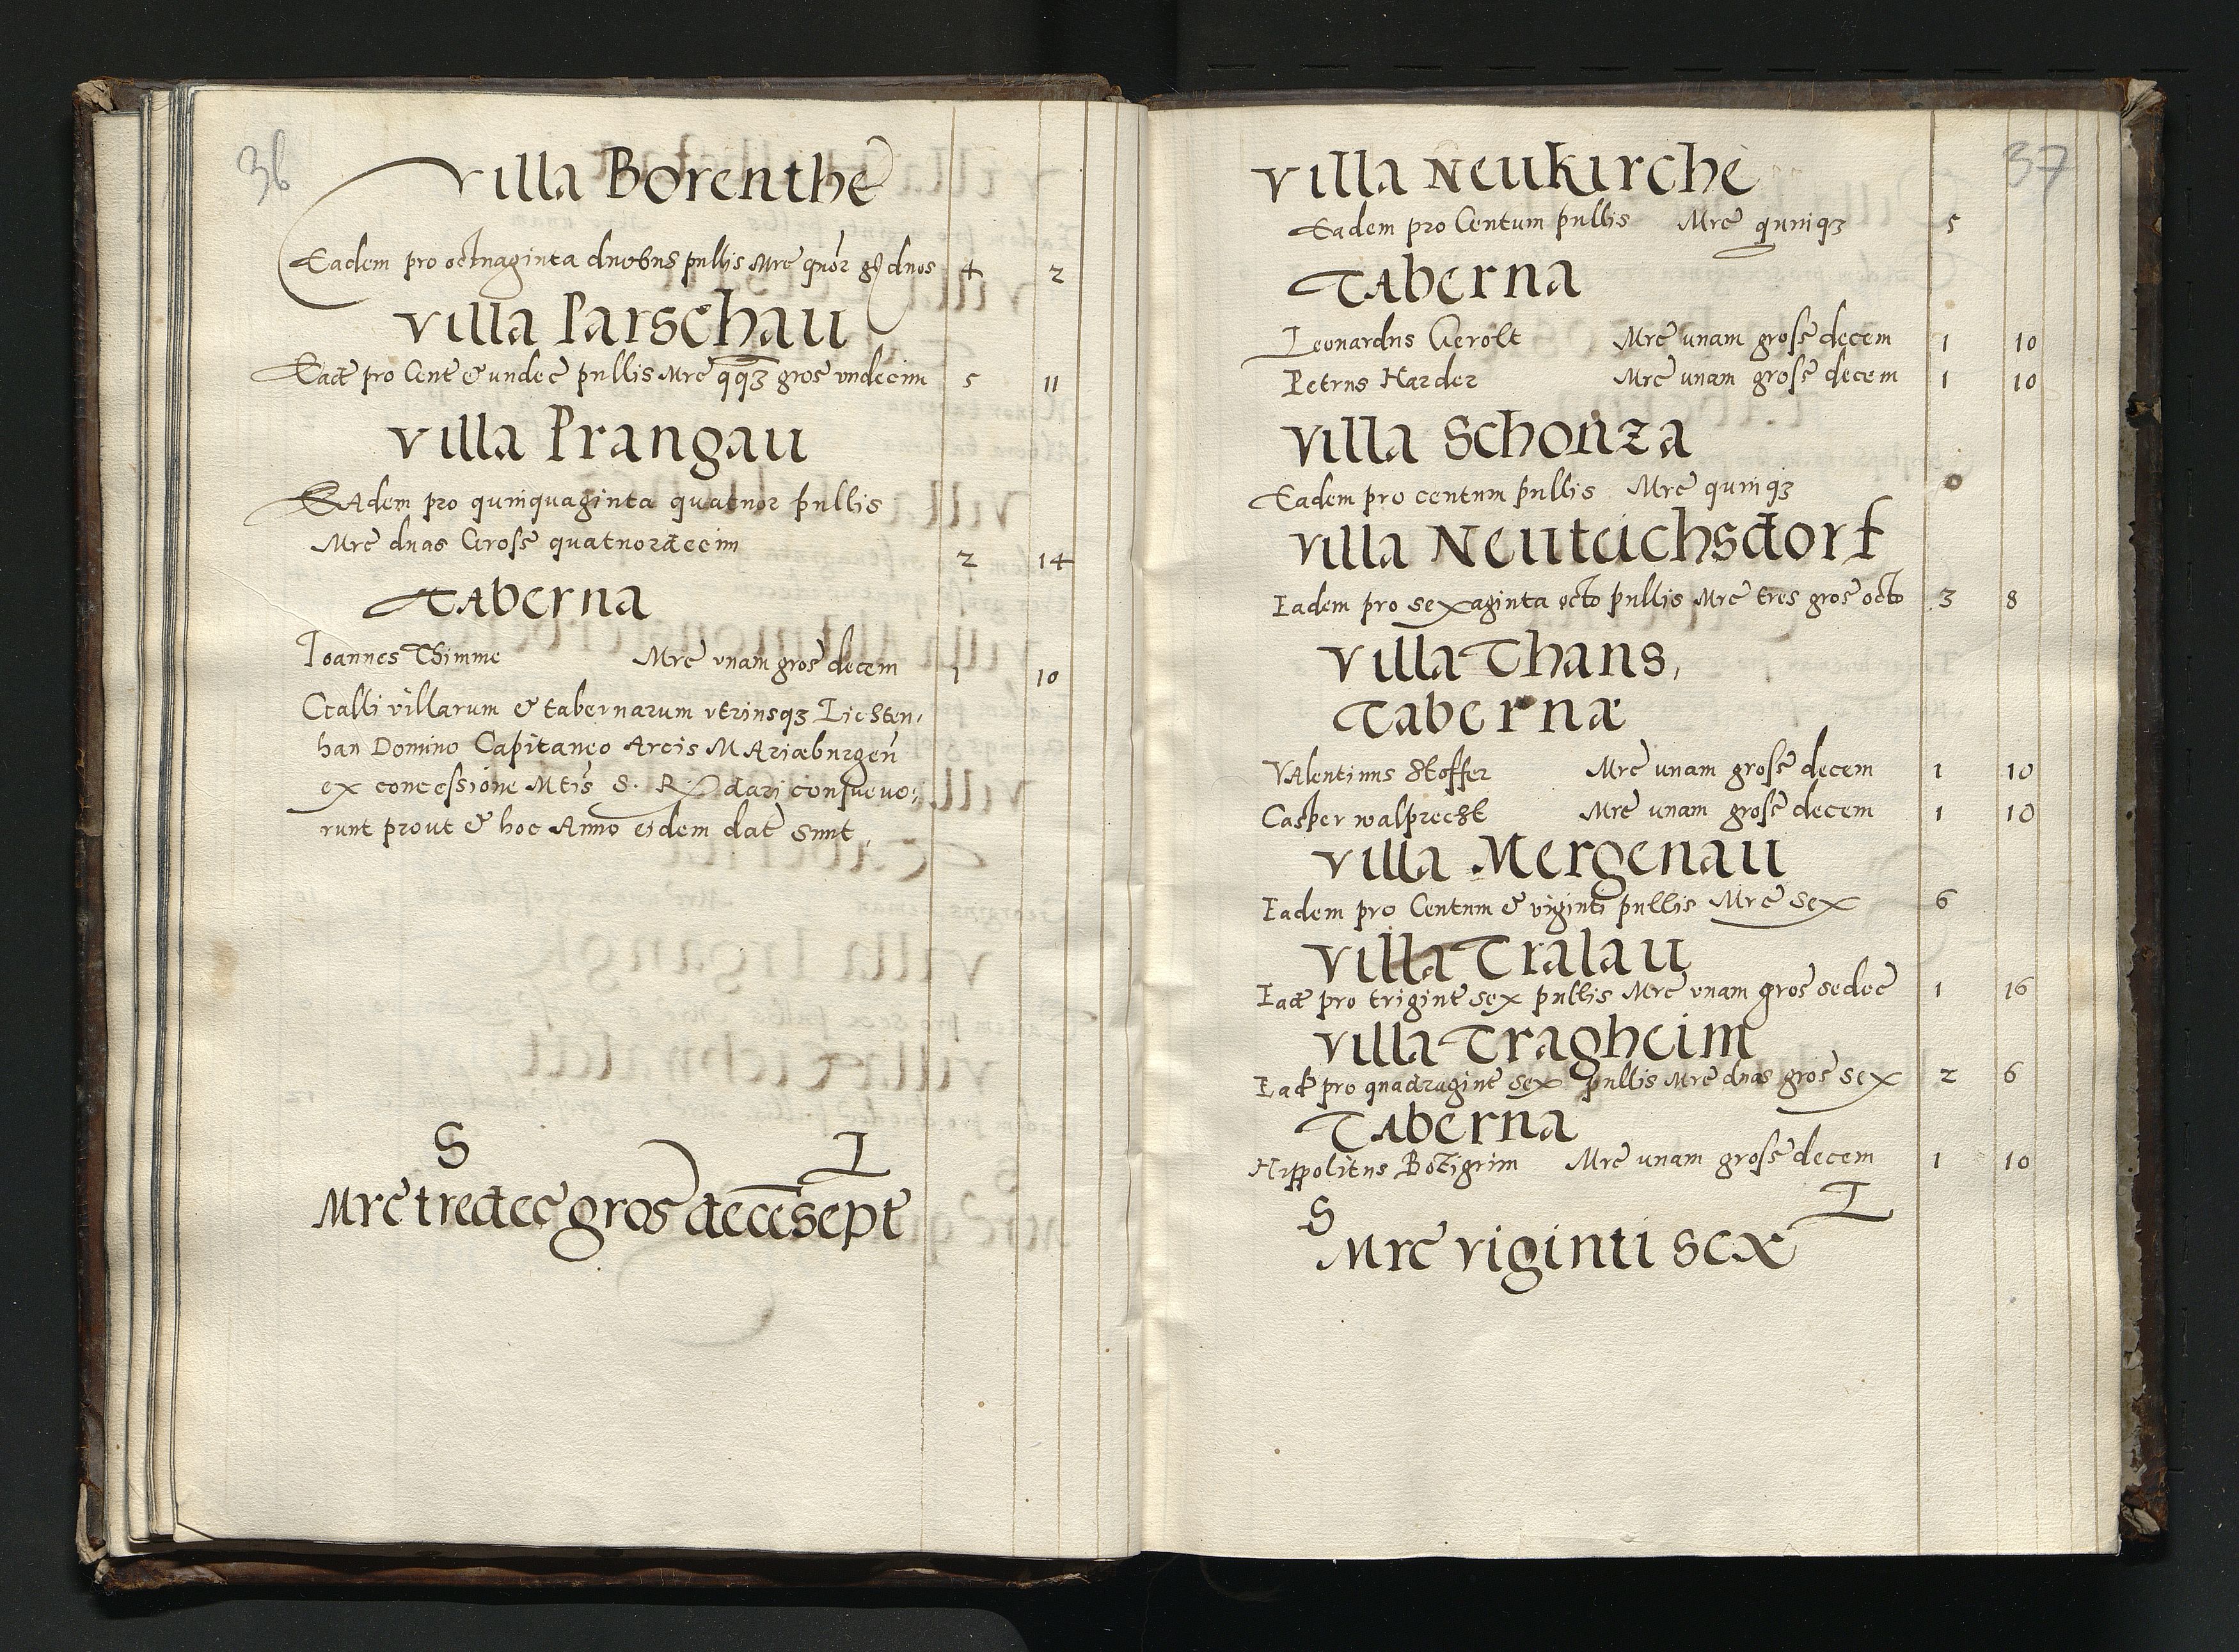 36
Villa Borenthe
Eadem pro octuaginta duobus pullis Mrc quor g duos 4 2
Villa Parschau
Ead pro Cent & undec pullis Mrc qqꝫ gros undecim 5 11
Villa Prangau
Eadem pro quinquaginta quatuor pullis
Mrc duas Gross quatuordecim 2 14
Taberna
Ioannes Thimme Mrc vnam gros decem 1 10
Galli villarum & tabernarum vtriusqꝫ Lichten,
han Domino Capitaneo Arcis Mariæburgen
ex concessione Mtis S. R. dari consueue,
runt prout & hoc Anno eidem dat sunt,
S I
Mrc tredec gros decesept
37
Villa Neukirche
Eadem pro Centum pullis Mrc quinqꝫ 5
Taberna
Leonardus Gerolt Mrc unam gross decem 1 10
Petrus Harder Mrc unam gross decem 1 10
Villa Schonza
Eadem pro centum pullis Mrc quinqꝫ 0
Villa Neuteichsdorf
Eadem pro sexaginta octo pullis Mrc tres gros octo 3 8
Villa Thans,
Tabernæ
Valentinus Stoffer Mrc unam gross decem 1 10
Casper walprecht Mrc unam gross decem 1 10
Villa Mergenau
Eadem pro Centum & viginti pullis Mrc sex 6
Villa Tralau
Ead pro trigint sex pullis Mrc unam gros sedec 1 16
Villa Tragheim
Ead pro quadragint sex pullis Mrc duas gros sex 2 6
Taberna
Hippolitus Botigrim Mrc unam gross decem 1 10
S I
Mrc viginti sex